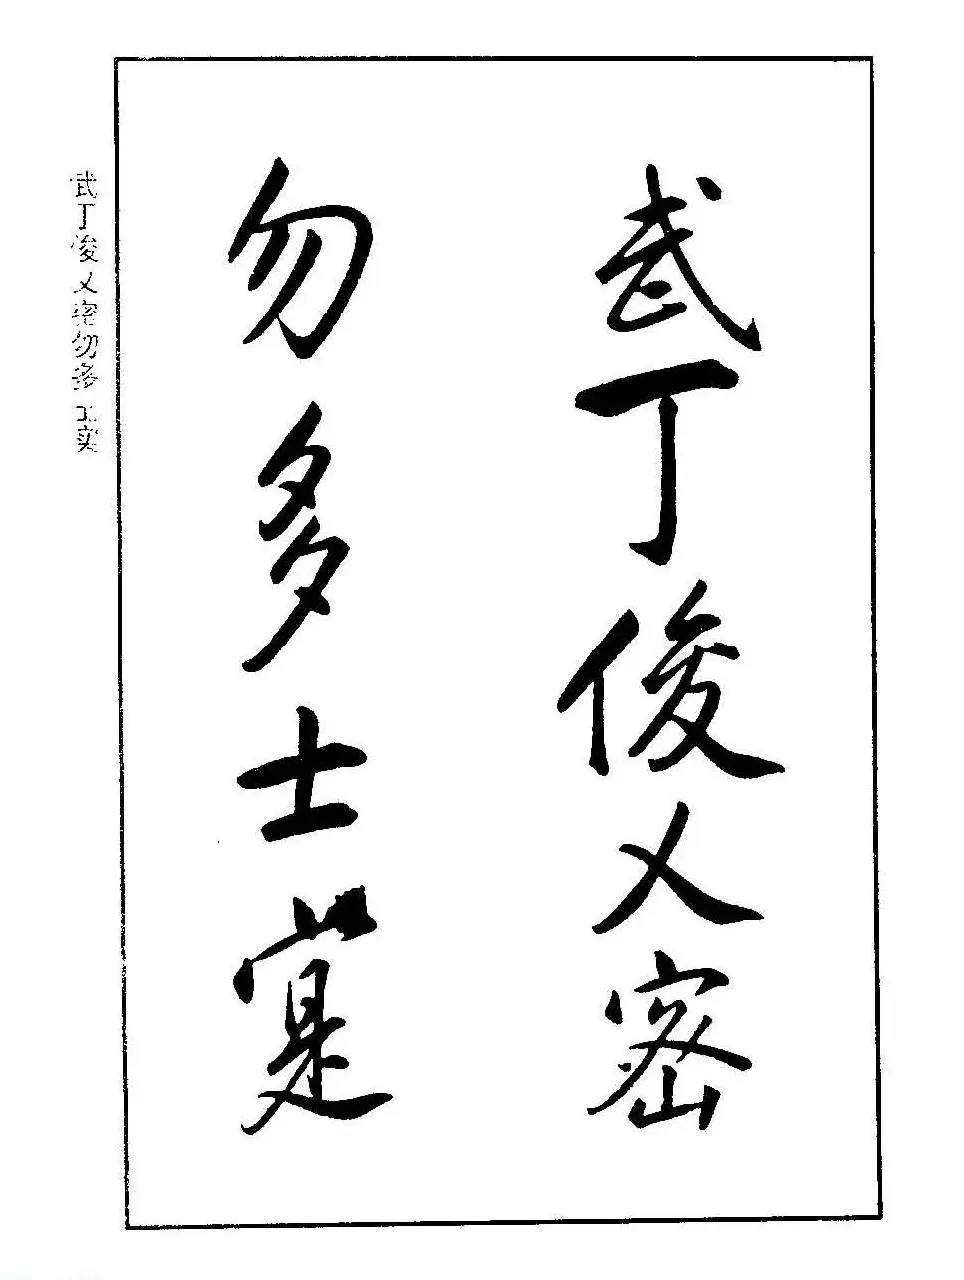 武丁俊乂密
勿多士寔
武丁俊乂密勿多士实